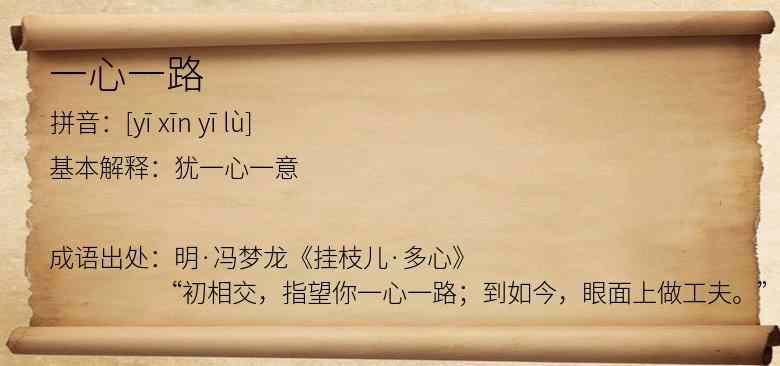 一心一路
拼音：[yī xīn yī lù]
基本解释：犹一心一意
成语出处：明·冯梦龙《挂枝儿·多心》
“初相交，指望你一心一路；到如今，眼面上做工夫。”